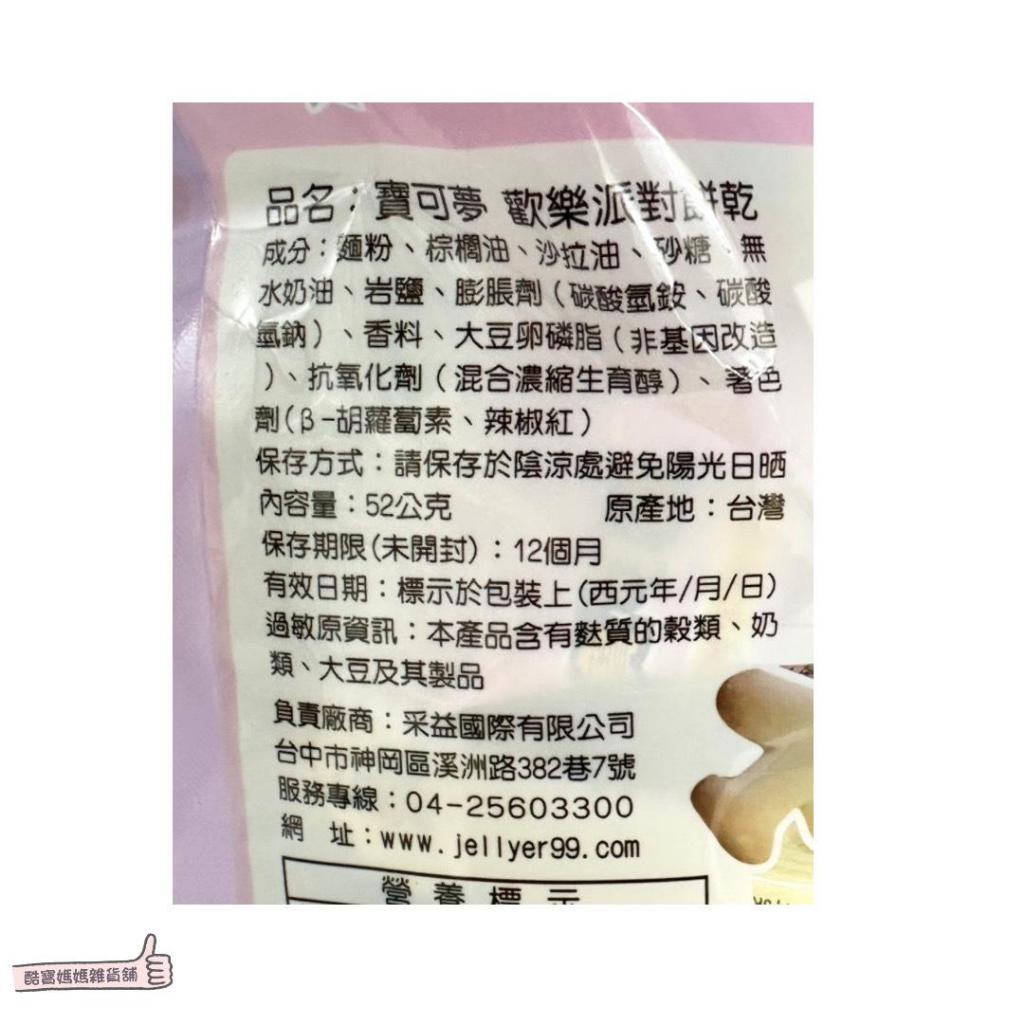 品名：寶可夢 歡樂派對餅乾
成分：麵粉、棕櫚油、沙拉油、砂糖、無
水奶油、岩鹽、膨脹劑（碳酸氫銨、碳酸
氫鈉）、香料、大豆卵磷脂（非基因改造
）、抗氧化劑（混合濃縮生育醇）、著色
劑(β-胡蘿蔔素、辣椒紅）
保存方式：請保存於陰涼處避免陽光日晒
內容量：52公克 原產地：台灣
保存期限(未開封)：12個月
有效日期：標示於包裝上(西元年/月/日)
過敏原資訊：本產品含有麩質的穀類、奶
類、大豆及其製品
負責廠商：采益國際有限公司
台中市神岡區溪洲路382巷7號
服務專線：04-25603300
網 址：www.jellyer99.com
營養標示
酷寶媽媽雜貨舖